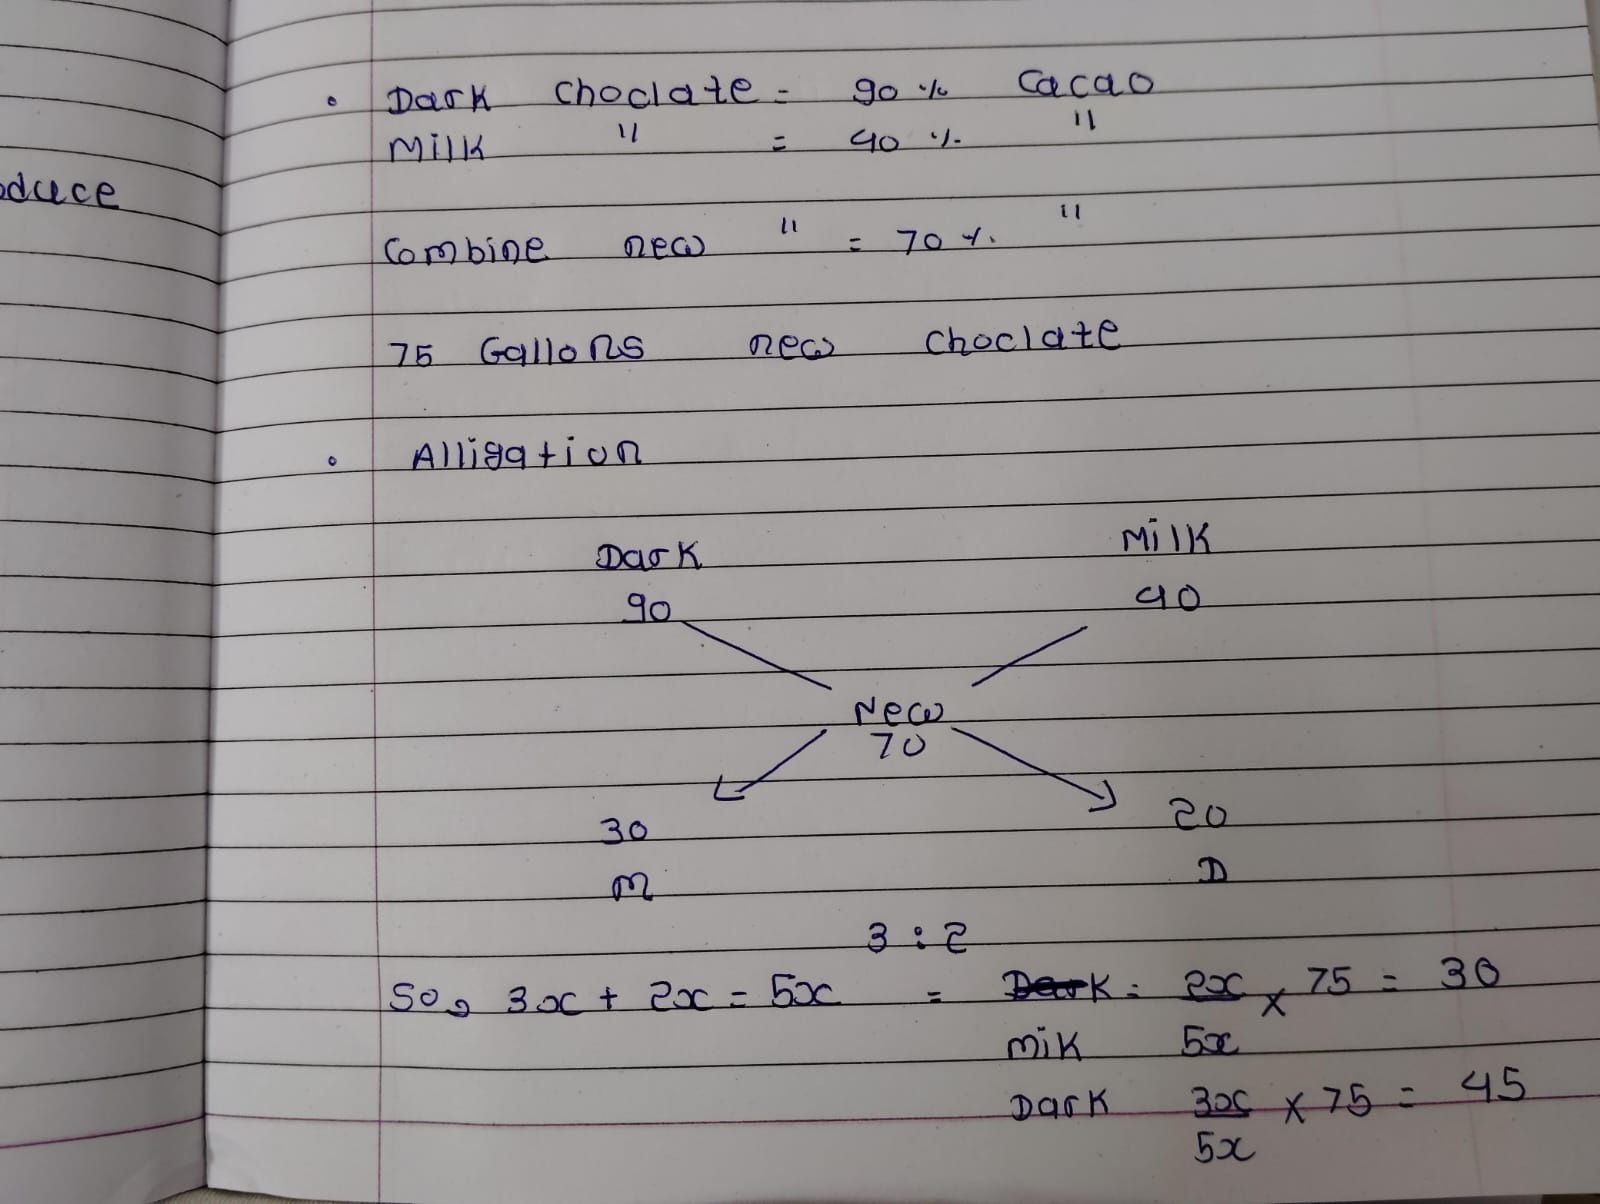 oduce
• Dark Choclate = 90 % Cacao
Milk " = 40 % "
Combine new " = 70 % "
75 Gallons new choclate
• Alligation
Dark Milk
90 40
New
70
30 20
M D
3 : 2
So, 3x + 2x = 5x = Dark = 2x/5x × 75 = 30
Mik
Dark 3x/5x × 75 = 45